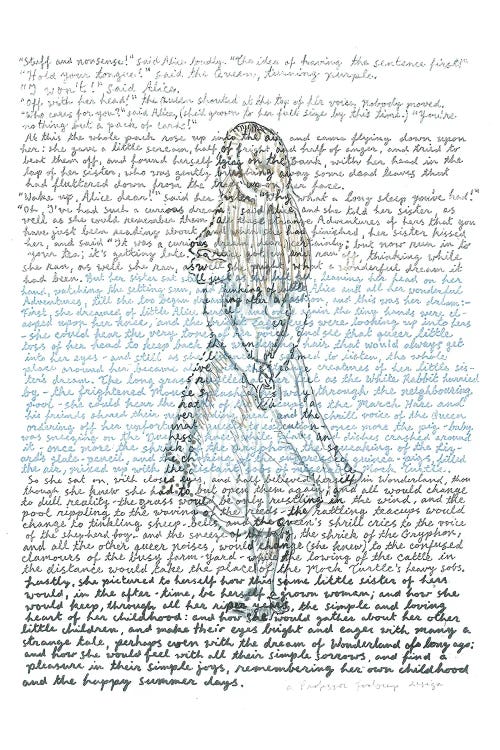 "Stuff and nonsense!" said Alice loudly. "The idea of having the sentence first!"
"Hold your tongue!" said the Queen, turning purple.
"I won't!" said Alice.
"Off with her head!" the Queen shouted at the top of her voice. Nobody moved.
"Who cares for you?" said Alice, (she'd grown to her full size by this time.) "You're
nothing but a pack of cards!"
At this the whole pack rose up in the air, and came flying down upon
her: she gave a little scream, half of fright and half of anger, and tried to
beat them off, and found herself lying on the bank, with her head in the
lap of her sister, who was gently brushing away some dead leaves that
had fluttered down from the trees upon her face.
"Wake up, Alice dear!" said her sister; "Why, what a long sleep you've had!"
"Oh, I've had such a curious dream!" said Alice, and she told her sister, as
well as she could remember them, all these strange Adventures of hers that you
have just been reading about; and when she had finished, her sister kissed
her, and said "It was a curious dream, dear, certainly: but now run in to
your tea; it's getting late." So Alice got up and ran off, thinking while
she ran, as well she might, what a wonderful dream it
had been. But her sister sat still just as she left her, leaning her head on her
hand, watching the setting sun, and thinking of little Alice and all her wonderful
Adventures, till she too began dreaming after a fashion, and this was her dream:-
First, she dreamed of little Alice herself, and once again the tiny hands were cl-
asped upon her knee, and the bright eager eyes were looking up into hers
- she could hear the very tones of her voice, and see that queer little
toss of her head to keep back the wandering hair that would always get
into her eyes - and still as she listened, or seemed to listen, the whole
place around her became alive with the strange creatures of her little sis-
ter's dream. The long grass rustled at her feet as the White Rabbit hurried
by - the frightened Mouse splashed his way through the neighbouring
pool - she could hear the rattle of the teacups as the March Hare and
his friends shared their never-ending meal, and the shrill voice of the Queen
ordering off her unfortunate guests to execution - once more the pig-baby
was sneezing on the Duchess's knee, while plates and dishes crashed around
it - once more the shriek of the Gryphon, the squeaking of the Liz-
ard's slate-pencil, and the choking of the suppressed guinea-pigs, filled
the air, mixed up with the distant sobs of the miserable Mock Turtle.
So she sat on, with closed eyes, and half believed herself in Wonderland, thou
though she knew she had to but open them again, and all would change
to dull reality - the grass would be only rustling in the wind, and the
pool rippling to the waving of the reeds - the rattling teacups would
change to tinkling sheep-bells, and the Queen's shrill cries to the voice
of the shepherd boy - and the sneeze of the baby, the shriek of the Gryphon,
and all the other queer noises, would change (she knew) to the confused
clamours of the busy farm-yard - while the lowing of the cattle in
the distance would take the place of the Mock Turtle's heavy sobs.
Lastly, she pictured to herself how this same little sister of hers
would, in the after-time, be herself a grown woman; and how she
would keep, through all her riper years, the simple and loving
heart of her childhood: and how she would gather about her other
little children, and make their eyes bright and eager with many a
strange tale, perhaps even with the dream of Wonderland of long ago:
and how she would feel with all their simple sorrows, and find a
pleasure in their simple joys, remembering her own childhood
and the happy summer days.
a Professor design